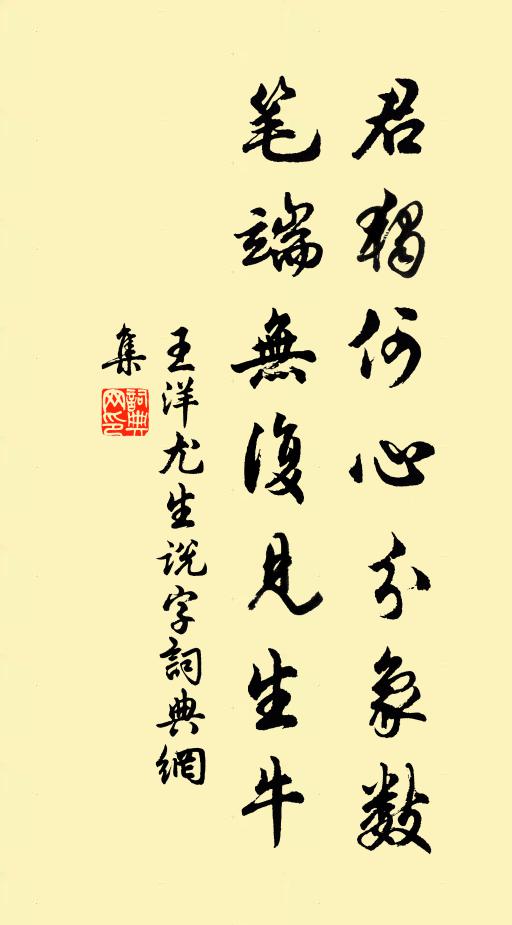 君獨何心分象數
笔端無復見生牛
王洋尤生说字詞典網
集
詞典网印